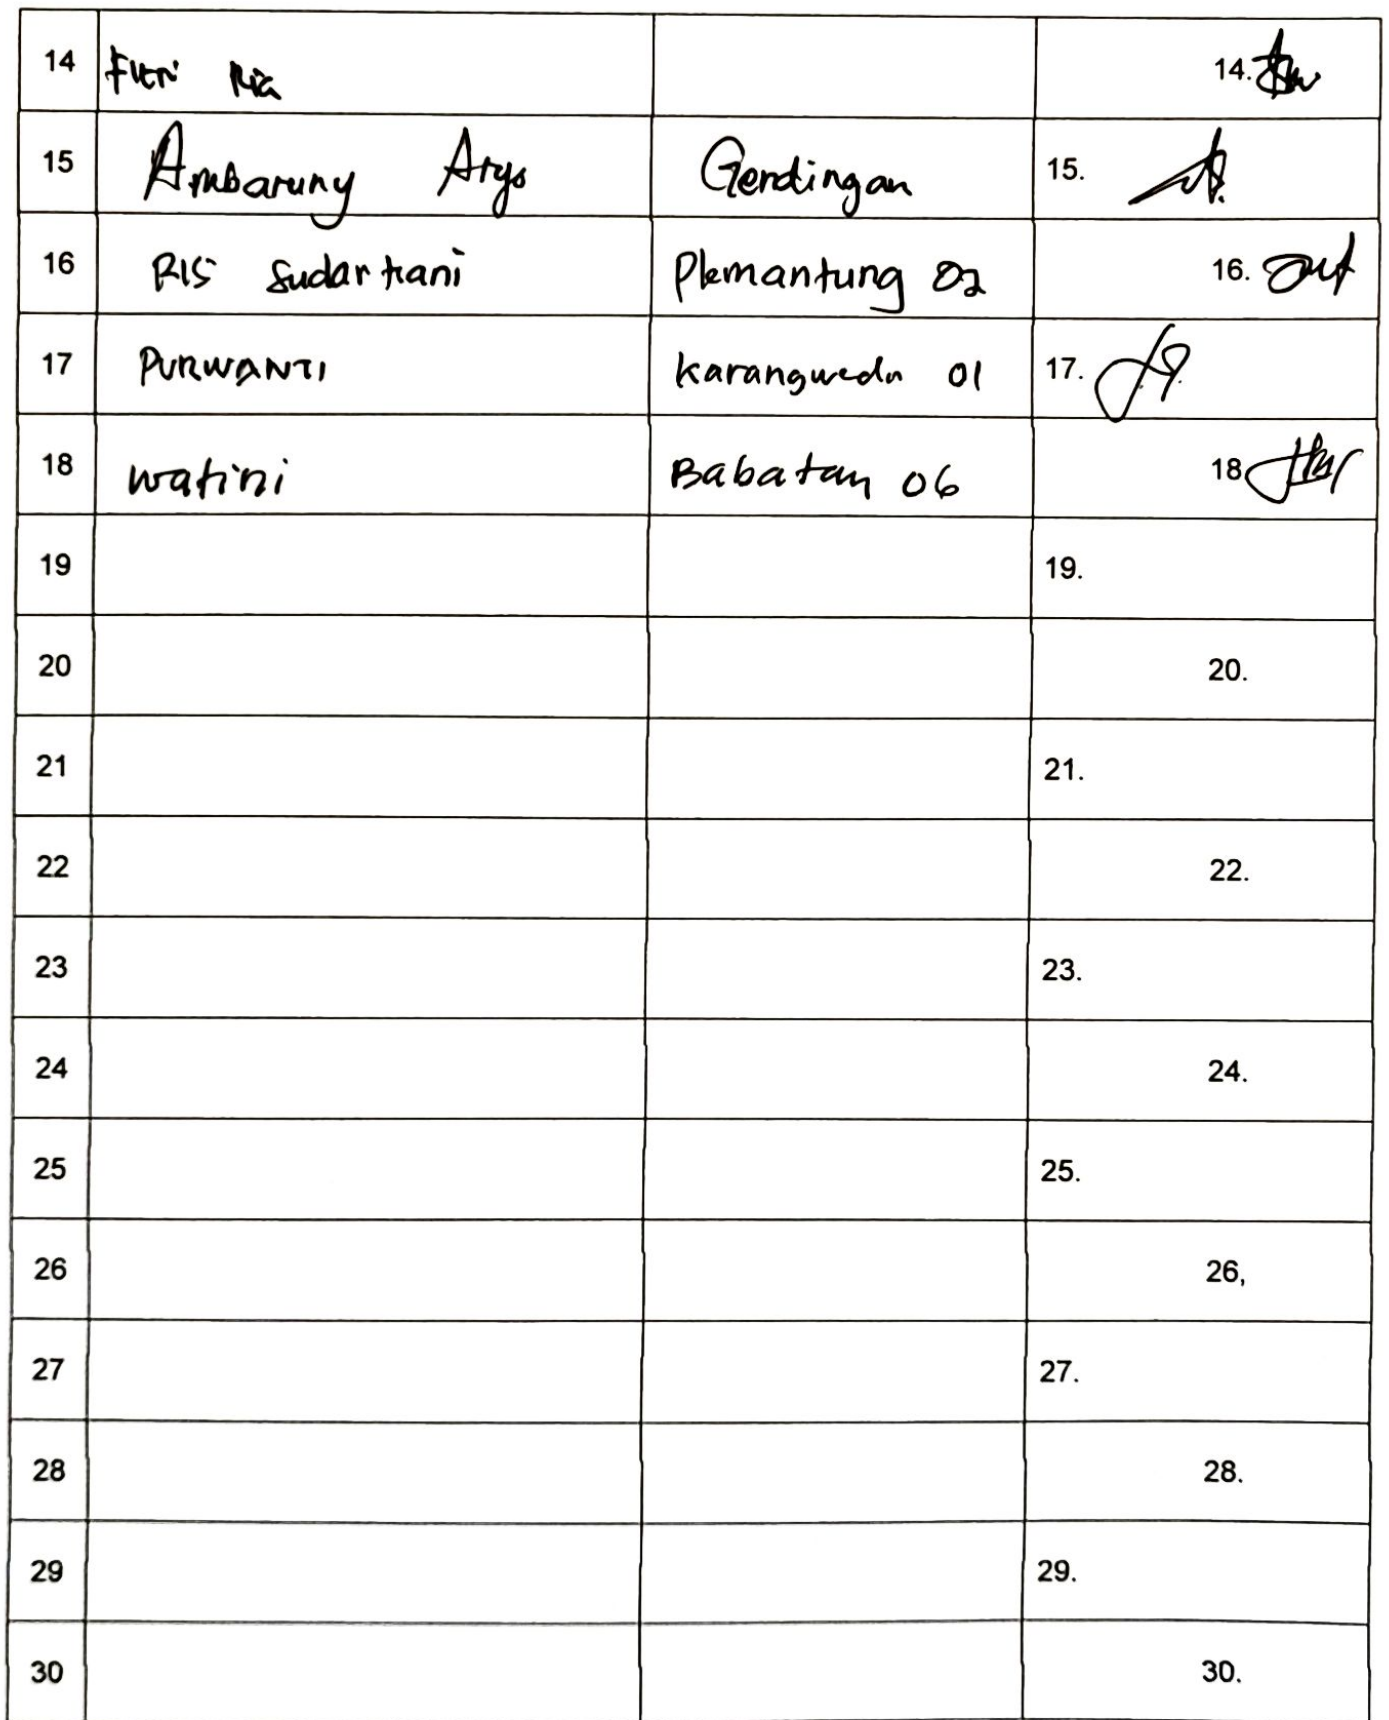 14 Fitri Ria 14.
15 Ambaruny Aryo Gerdingan 15.
16 RIS Sudartiani Plemantung 02 16.
17 PURWANTI Karangwedu 01 17.
18 Watini Babatan 06 18
19 19.
20 20.
21 21.
22 22.
23 23.
24 24.
25 25.
26 26,
27 27.
28 28.
29 29.
30 30.